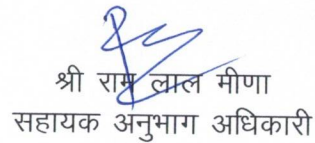 श्री राम लाल मीणा
सहायक अनुभाग अधिकारी